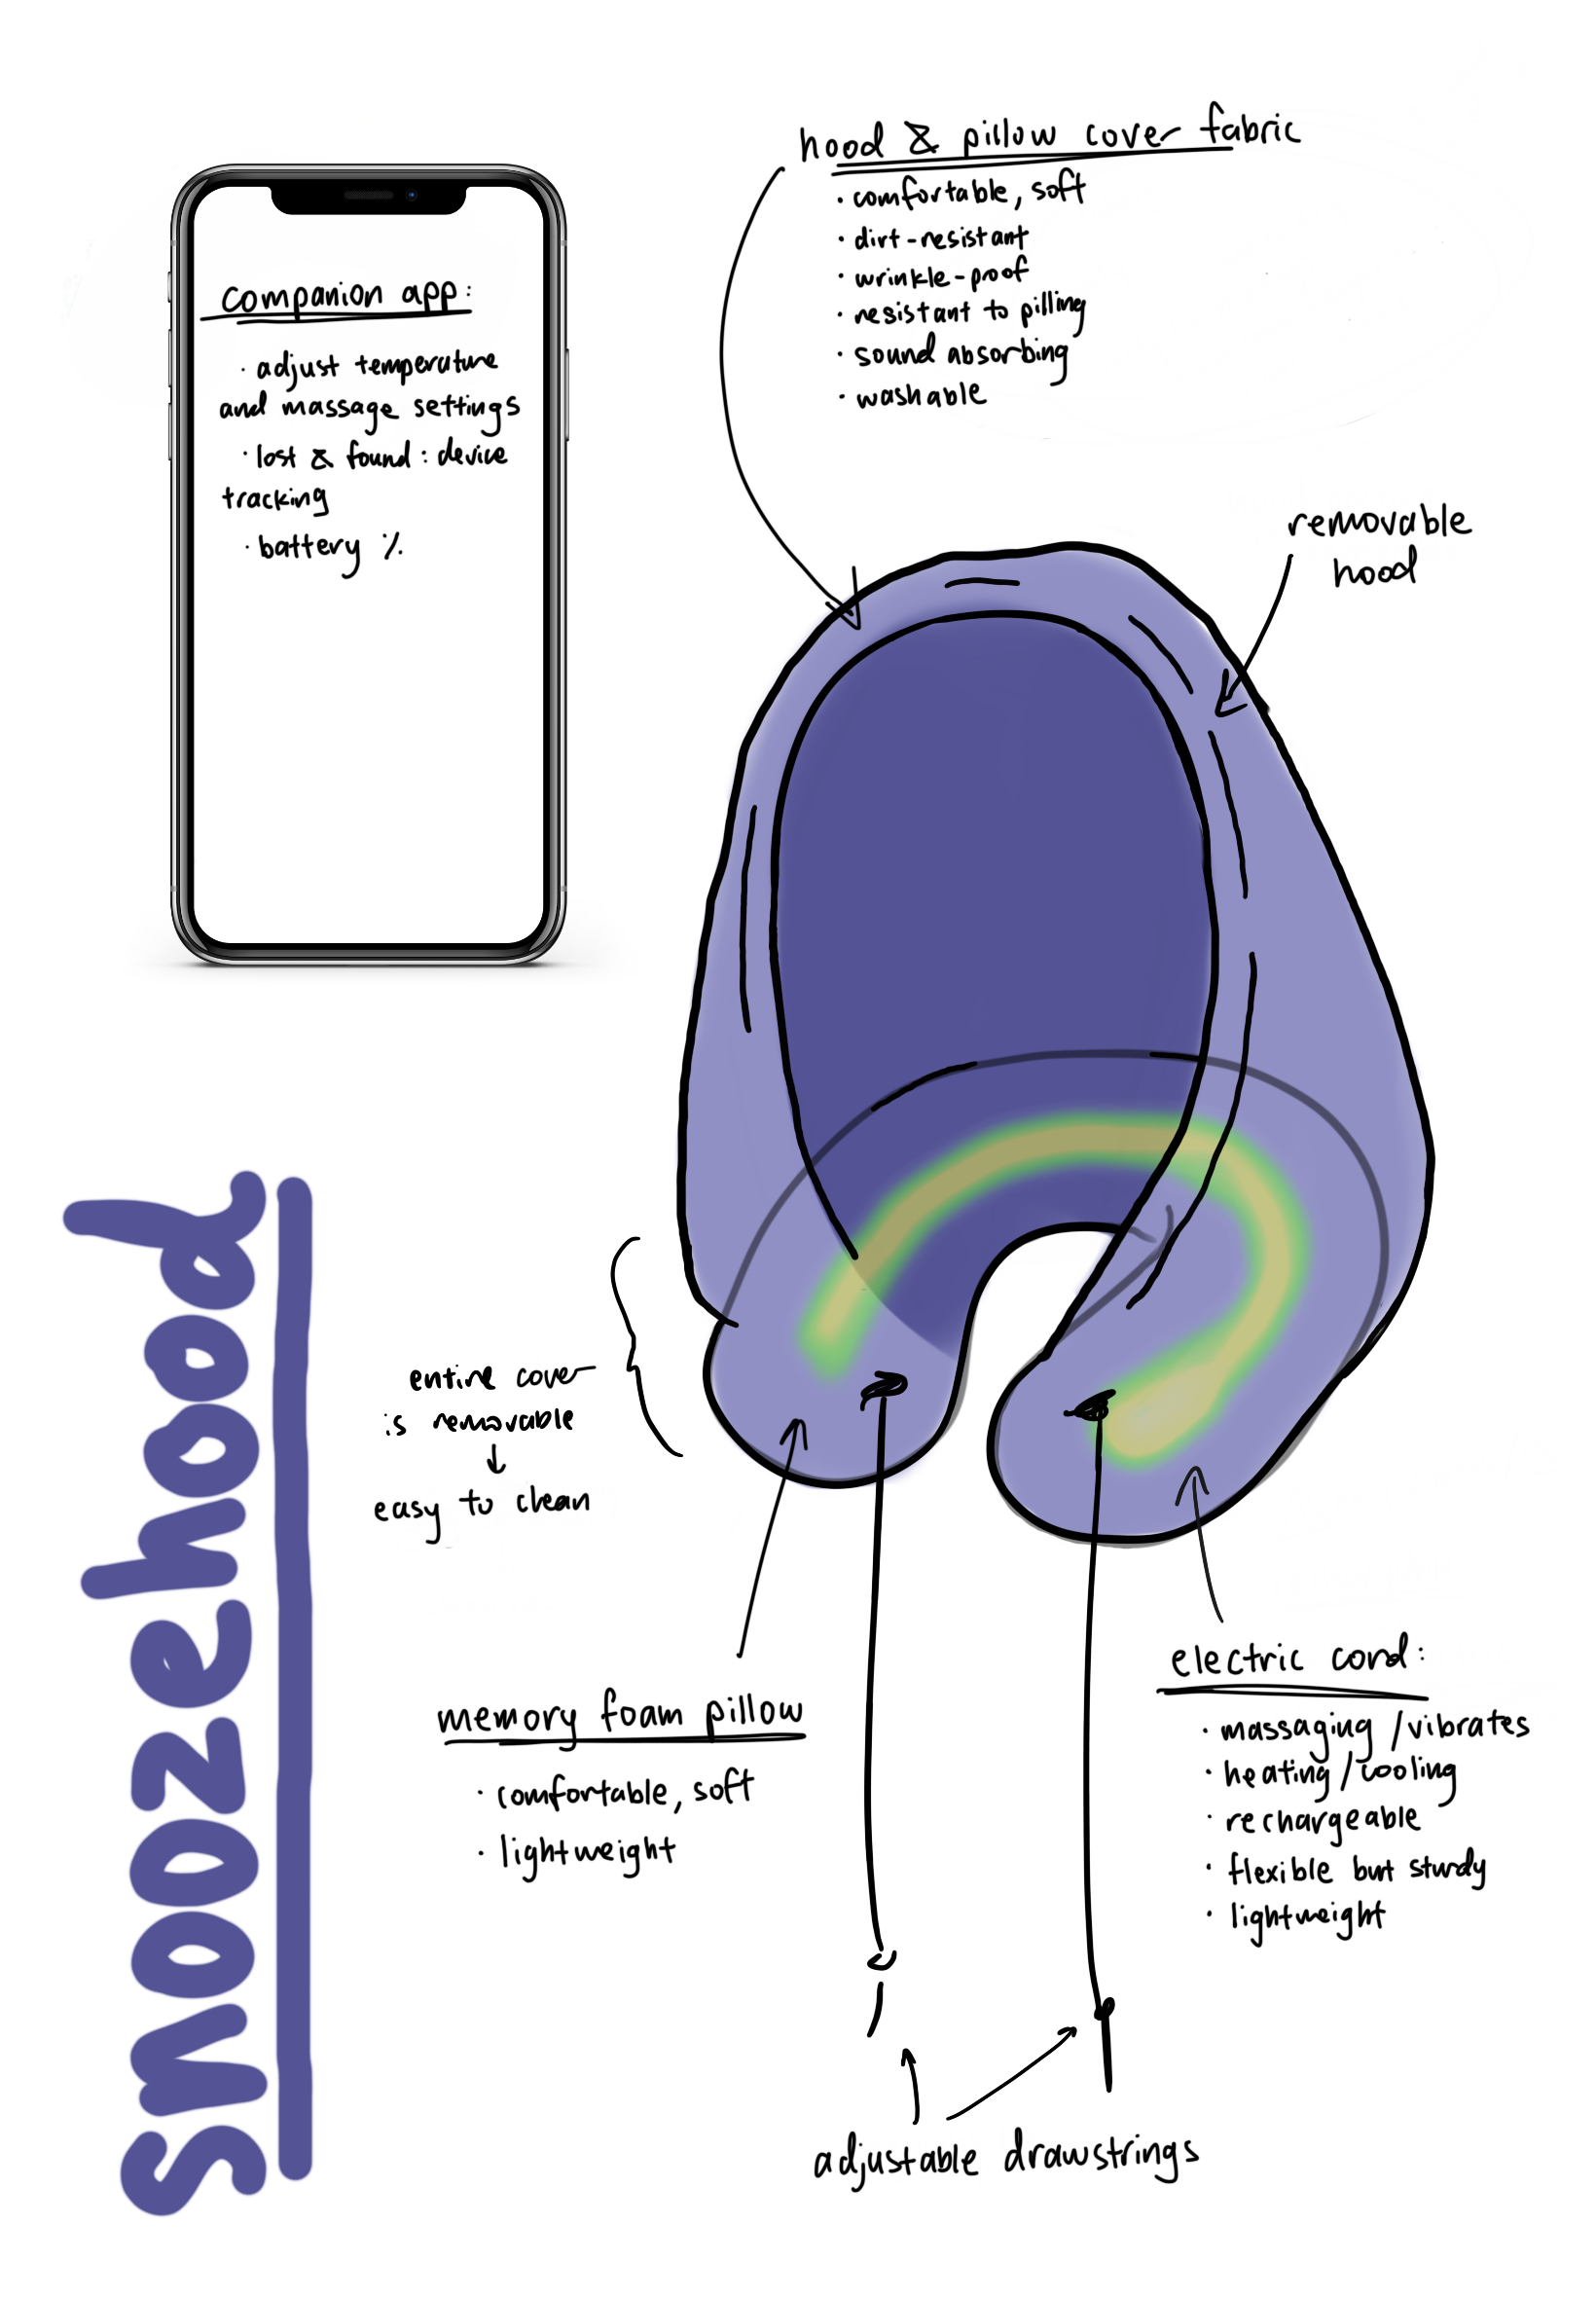 companion app:
· adjust temperature
and massage settings
· lost & found: device
tracking
· battery %
hood & pillow cover fabric
· comfortable, soft
· dirt-resistant
· wrinkle-proof
· resistant to pilling
· sound absorbing
· washable
removable
hood
snoozehood
entire cover
is removable
↓
easy to clean
memory foam pillow
· comfortable, soft
· lightweight
electric cord:
· massaging/vibrates
· heating/cooling
· rechargeable
· flexible but sturdy
· lightweight
adjustable drawstrings